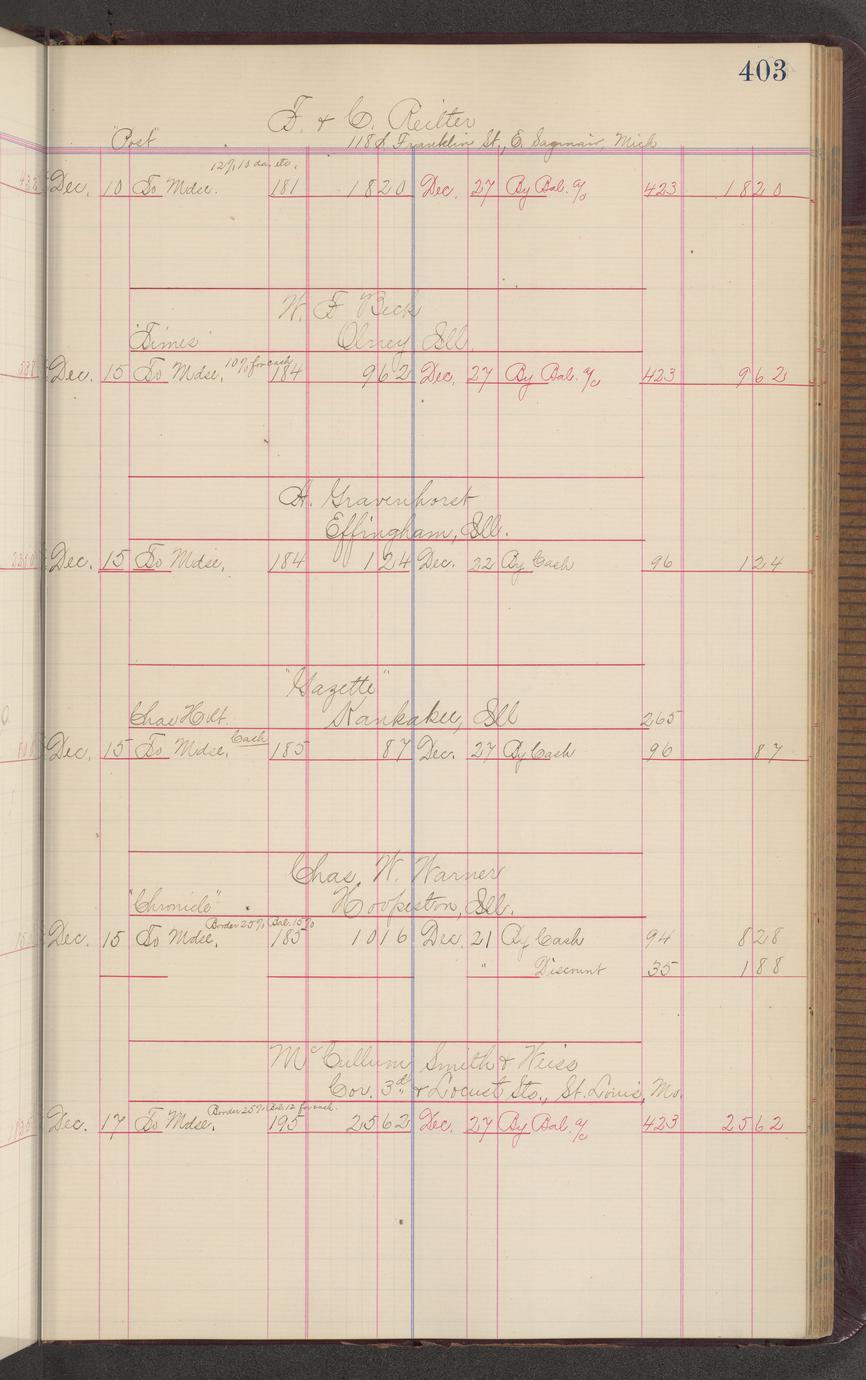 403
F. & C. Reitter
"Post" 118 S Franklin St., E. Saginaw, Mich
12% 10 da, etc.
Dec. 10 To Mdse. 181 1820 Dec. 27 By Bal. a/c 423 1820
W. F Beck
"Times" Olney Ill.
10% for cash
Dec. 15 To Mdse, 184 962 Dec. 27 By Bal. a/c 423 962
H. Gravenhorst
Effingham, Ill.
Dec. 15 To Mdse, 184 124 Dec. 22 By Cash 96 124
"Gazette"
Chas Holt. Kankakee, Ill 265
Cash
Dec. 15 To Mdse, 185 87 Dec. 27 By Cash 96 87
Chas. W. Warner
"Chronicle" Hoopeston, Ill.
Border 25% Bal. 15%
Dec. 15 To Mdse, 185 1016 Dec. 21 By Cash 94 828
" Discount 35 188
McCullum Smith & Weiss
Cor. 3rd & Locust Sts., St. Louis, Mo.
Border 25% Bal. 12 for cash.
Dec. 17 To Mdse, 195 2562 Dec. 27 By Bal. a/c 423 2562